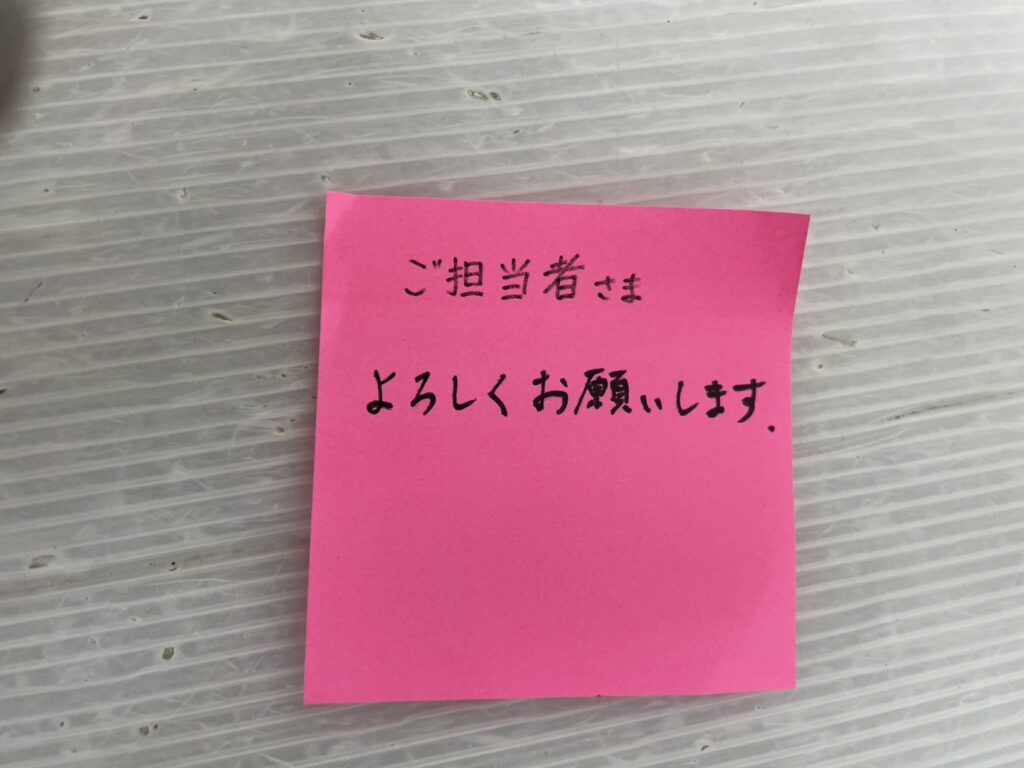 ご担当者さま
よろしくお願いします.